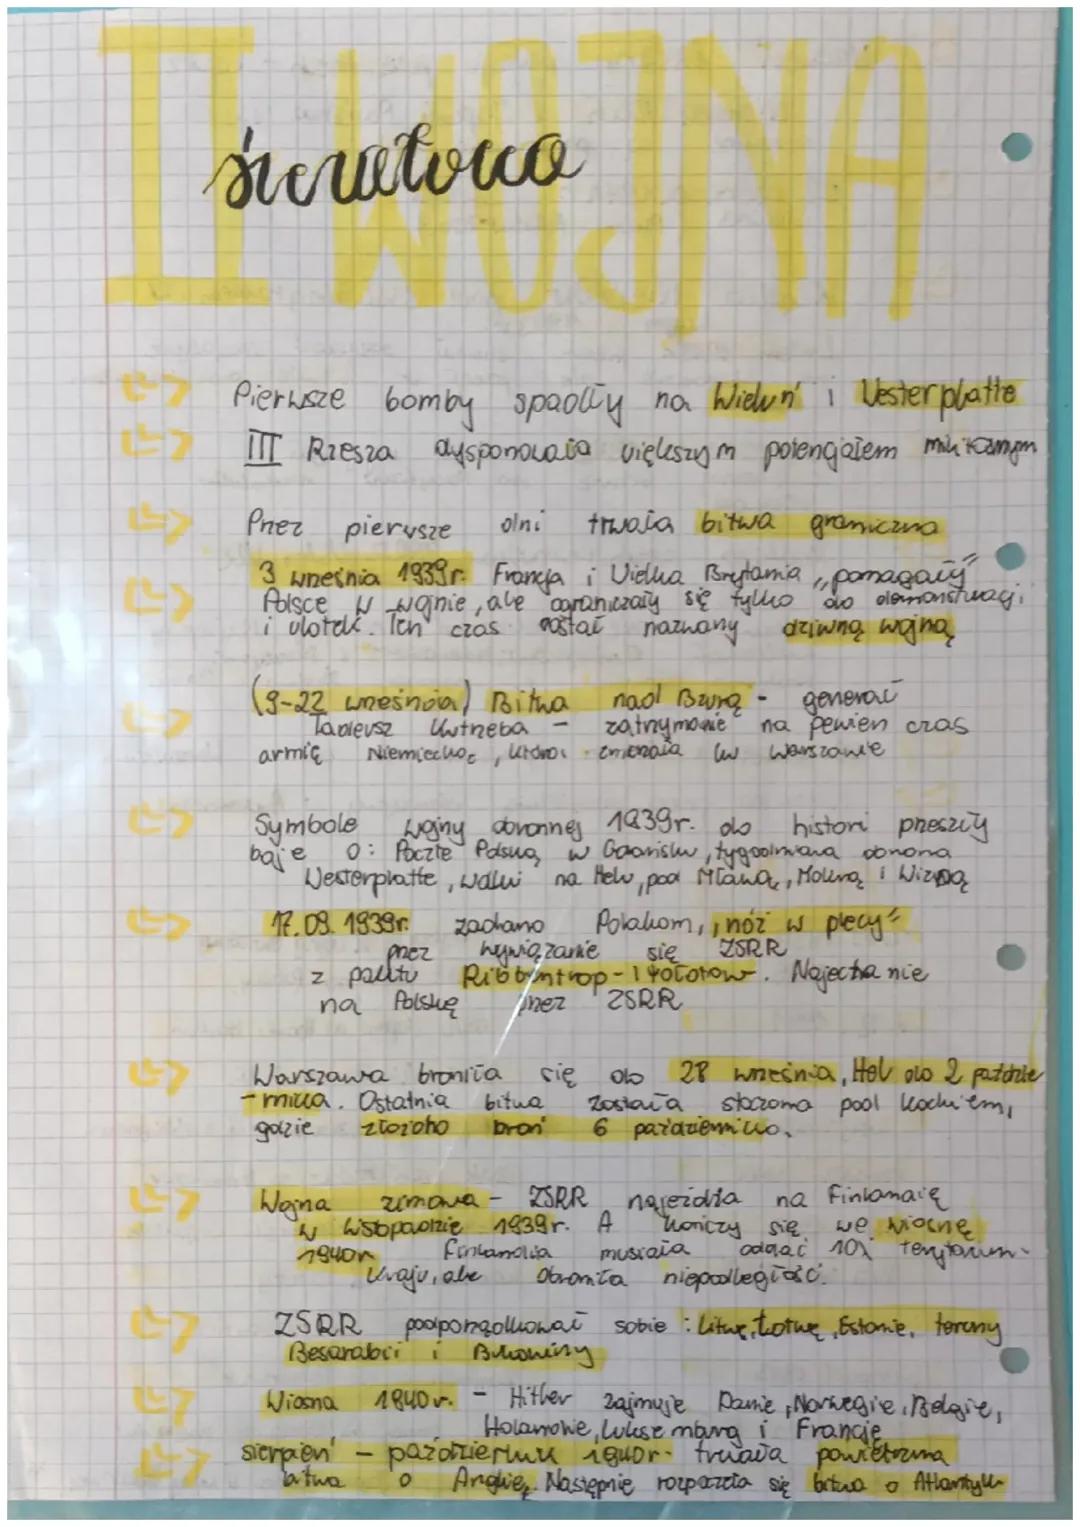 II WOJNA
światowa
Pierwsze bomby spadły na Wieluń i Westerplatte
III Rzesza dysponowała większym potencjałem militarnym
Przez pierwsze dni trwała bitwa graniczna
3 września 1939r. Francja i Wielka Brytania „pomagały"
Polsce w wojnie, ale ograniczały się tylko do demonstracji
i ulotek. Ten czas został nazwany dziwną wojną
(9-22 września) Bitwa nad Bzurą - generał
Tadeusz Kutrzeba - zatrzymanie na pewien czas
armię Niemiecką, która zmierzała ku Warszawie
Symbole wojny obronnej 1939r. do histori przeszły
boje o: Pocztę Polską w Gdańsku, tygodniowa obrona
Westerplatte, walki na Helu, pod Mławą, Mokrą i Wizną
17.09.1939r. zadano Polakom, „nóż w plecy"
przez wywiązanie się ZSRR
z paktu Ribbentrop-Mołotow. Najechanie
na Polskę przez ZSRR
Warszawa broniła się do 28 września, Hel do 2 paździe
-rnika. Ostatnia bitwa została stoczona pod Kockiem,
gdzie złożono broń 6 października.
Wojna zimowa - ZSRR najeżdża na Finlandię
w listopadzie 1939r. A kończy się we wiosnę
1940r Finlandia musiała oddać 10% terytorium
kraju, ale obroniła niepodległość.
ZSRR podporządkował sobie: Litwę, Łotwę, Estonię, tereny
Besarabii i Bukowiny
Wiosna 1940r. - Hitler zajmuje Danię, Norwegię, Belgię,
Holandię, Luksemburg i Francję
sierpień - październik 1940r. trwała powietrzna
bitwa o Anglię. Następnie rozpoczęła się bitwa o Atlantyk